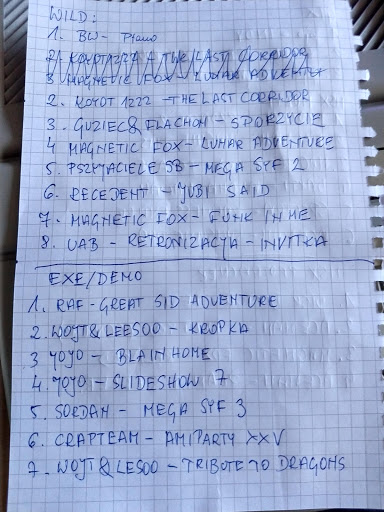 WILD:
1. BW - Piano
2) KOYOT1222 - THE LAST CORRIDOR
3 MAGNETIC FOX - LUNAR ADVENTU
2. KOYOT 1222 - THE LAST CORRIDOR
3. GUZIEC&FLACHOH - SPORZYCIE
4 MAGNETIC FOX - LUNAR ADVENTURE
5. PSZYJACIELE SB - MEGA SYF 2
6. RECEDENT - YUBI SAID
7. MAGNETIC FOX - FUNK IN ME
8. UAB - RETRONIZACJA - INVITKA
EXE/DEMO
1. RAF - GREAT SID ADVENTURE
2. WOJT&LEESOO - KROPKA
3 YOYO - BLAIN HOME
4. YOYO - SLIDESHOW 7
5. SORDAN - MEGA SYF 3
6. CRAPTEAM - AMIPARTY XXV
7. WOJT&LESOO - TRIBUTE TO DRAGONS